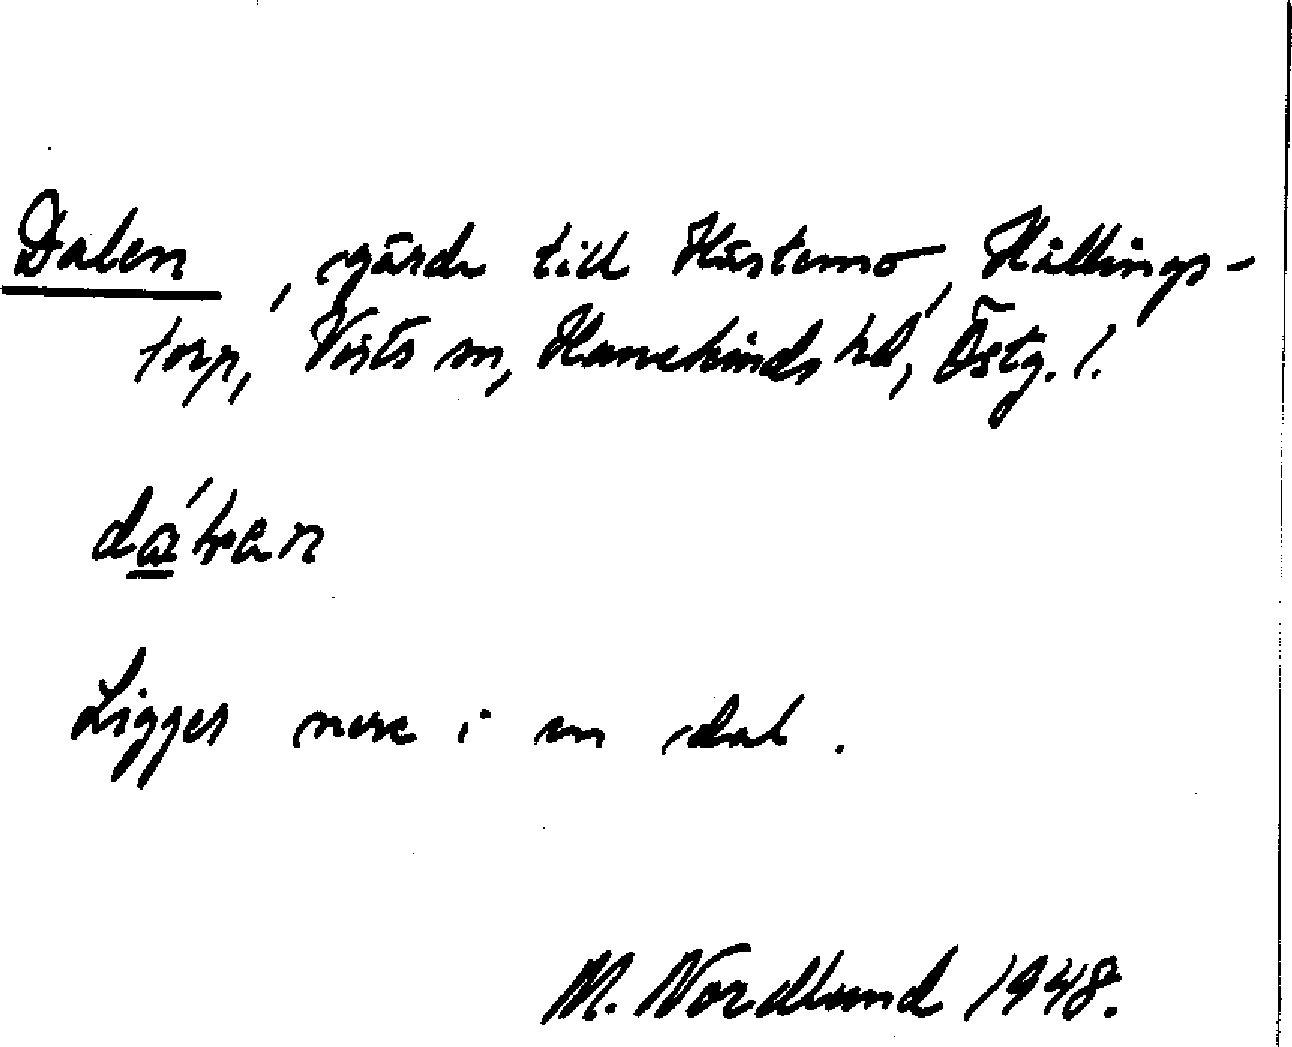 Dalen, gärde till Hästemo, Hällings-
torp, Vists sn, Hanekinds hd, Östg. l.
Ligger nere i en dal.
M. Nordlund 1948.